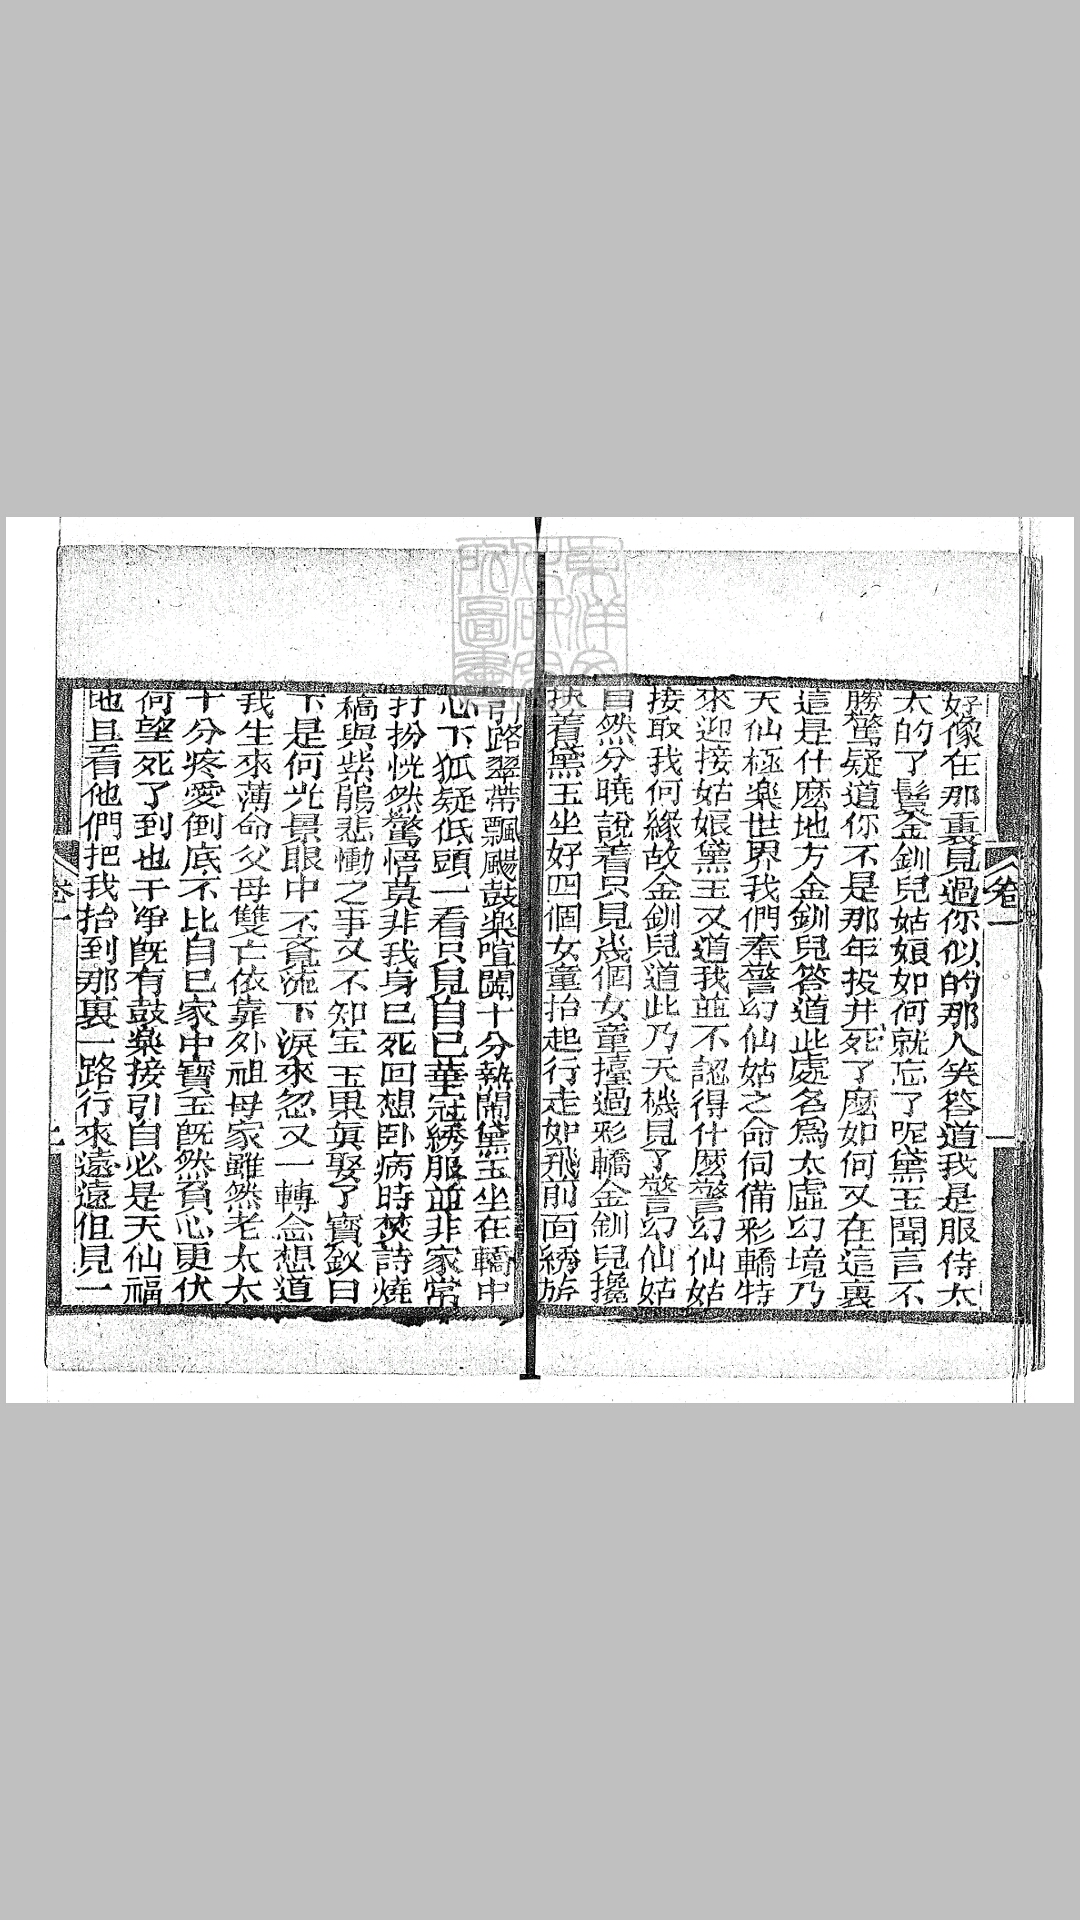 好像在那裏見過你似的那人笑答道我是服侍太
太的了鬟金釧兒姑娘如何就忘了呢黛玉聞言不
勝驚疑道你不是那年投井死了麽如何又在這裏
這是什麽地方金釧兒答道此處名爲太虛幻境乃
天仙極楽世界我們奉警幻仙姑之命伺備彩轎特
來迎接姑娘黛玉又道我並不認得什麽警幻仙姑
接取我何緣故金釧兒道此乃天機見了警幻仙姑
自然分曉說着只見幾個女童擡過彩轎金釧兒攙
扶着黛玉坐好四個女童抬起行走如飛前面綉旂
引路翠帶飄颺鼓楽喧闐十分熱鬧黛玉坐在轎中
心下狐疑低頭一看只見自己華冠綉服並非家常
打扮恍然驚悟莫非我身已死回想卧病時焚詩燒
稿與紫鵑悲慟之事又不知宝玉果眞娶了寶釵曰
下是何光景眼中不覔流下淚來忽又一轉念想道
我生來薄命父母雙亡依靠外祖母家雖然老太太
十分疼愛倒底不比自己家中寶玉旣然負心更伏
何望死了到也干净旣有鼓楽接引自必是天仙福
地且看他們把我抬到那裏一路行來遠遠但見一
卷一
一
卷一